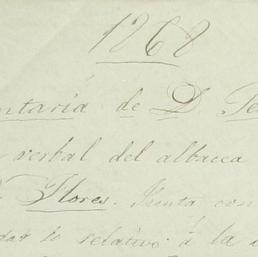 1868
ntaría de D. Fe
verbal del albacea
Flores. Junta con
dar lo relativo á la